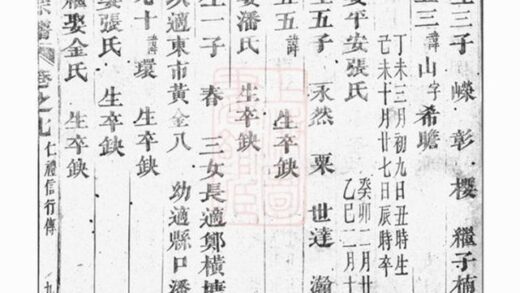 生三子 嶸 彰 櫻 繼子楠
三 諱山字希瞻
丁未三月初九日丑時生
己未十月廿七日辰時卒
娶平安張氏
癸卯二月廿
乙巳二月十
生五子 永然 粟 世達 瀚
五 諱
生卒缺
娶潘氏 生卒缺
生一子 春 三女長適鄭橫塘
適東市黃金八 幼適縣口潘
七十 諱環 生卒缺
娶張氏 生卒缺
繼娶金氏 生卒缺
卷之九 仁禮信行傳 九